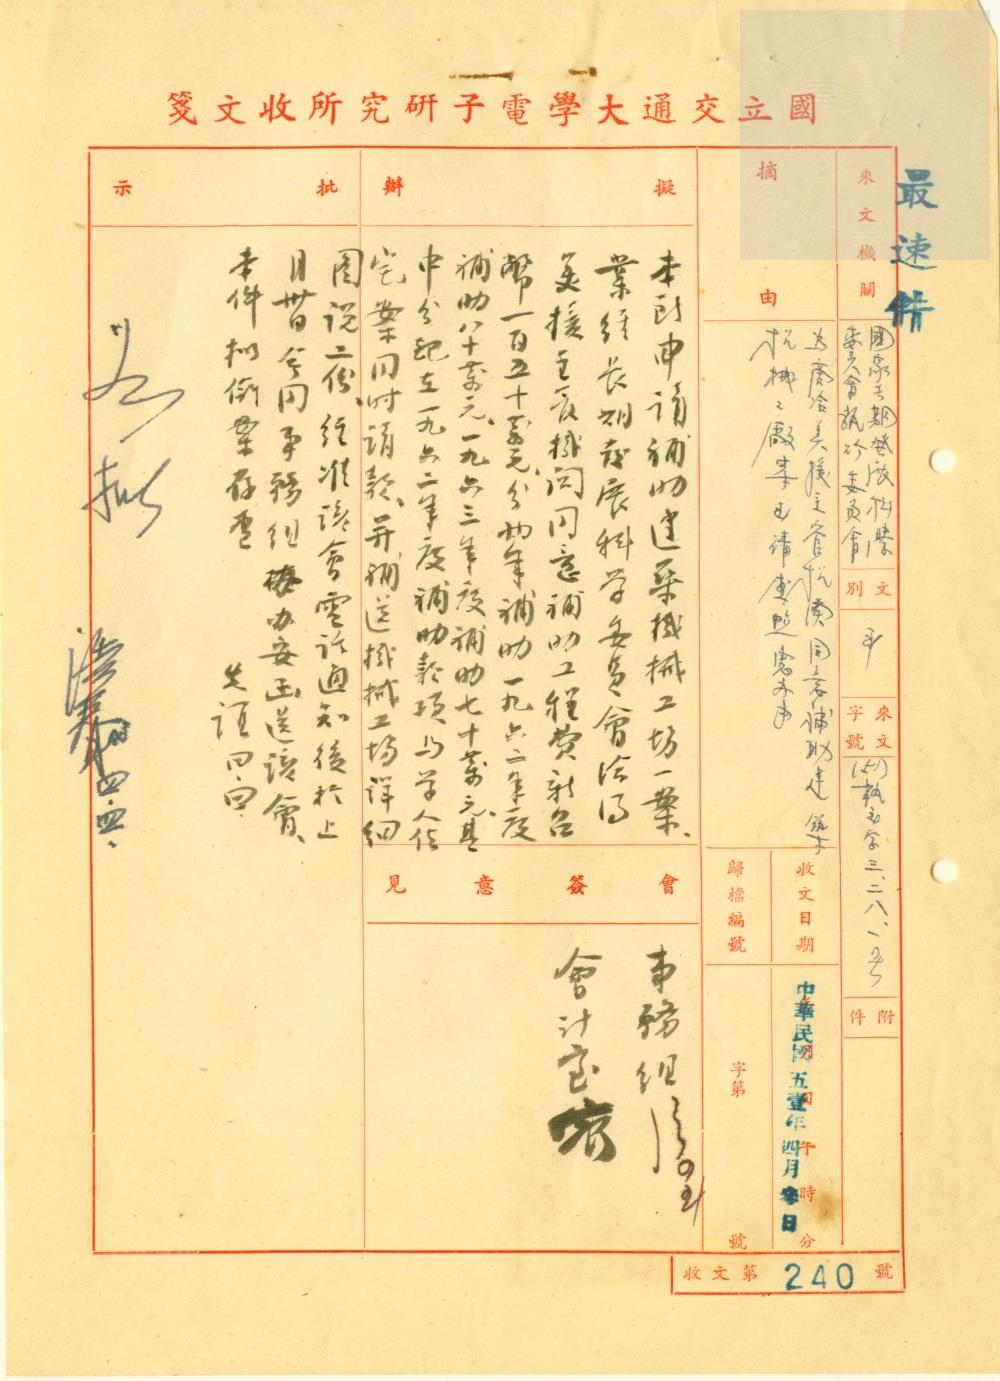 國立交通大學電子研究所收文箋
最速件
來文機關
國家長期發展科學
委員會執行委員會
文別
來文字號
(51)執
字三.二八.
附件
摘由
為商洽美援主管機關同意補助建築
機械工廠案已請查照惠辦由
收文日期
中華民國五壹年四月參日
午時分
歸檔編號
字第
號
擬辦
本所申請補助建築機械工坊一案、
業經長期發展科學委員會洽得
美援主管機關同意補助工程費新台
幣一百五十萬元、分兩年補助一九六二年度
補助八十萬元、一九六三年度補助七十萬元、其
中分配在一九六二年度補助款項與學人住
宅案同時請款、並補送機械工場詳細
圖說二份、經准該會電話通知後於上
月卅日會同事務組協辦妥函送該會、
本件擬併案存查
批示
如擬
四.四.
會簽意見
事務組
會計室
收文第240號